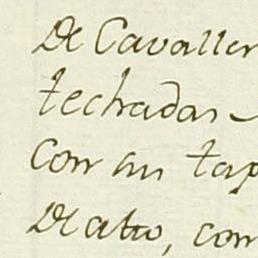 De Cavaller
techadas
con su tap
De alto, con